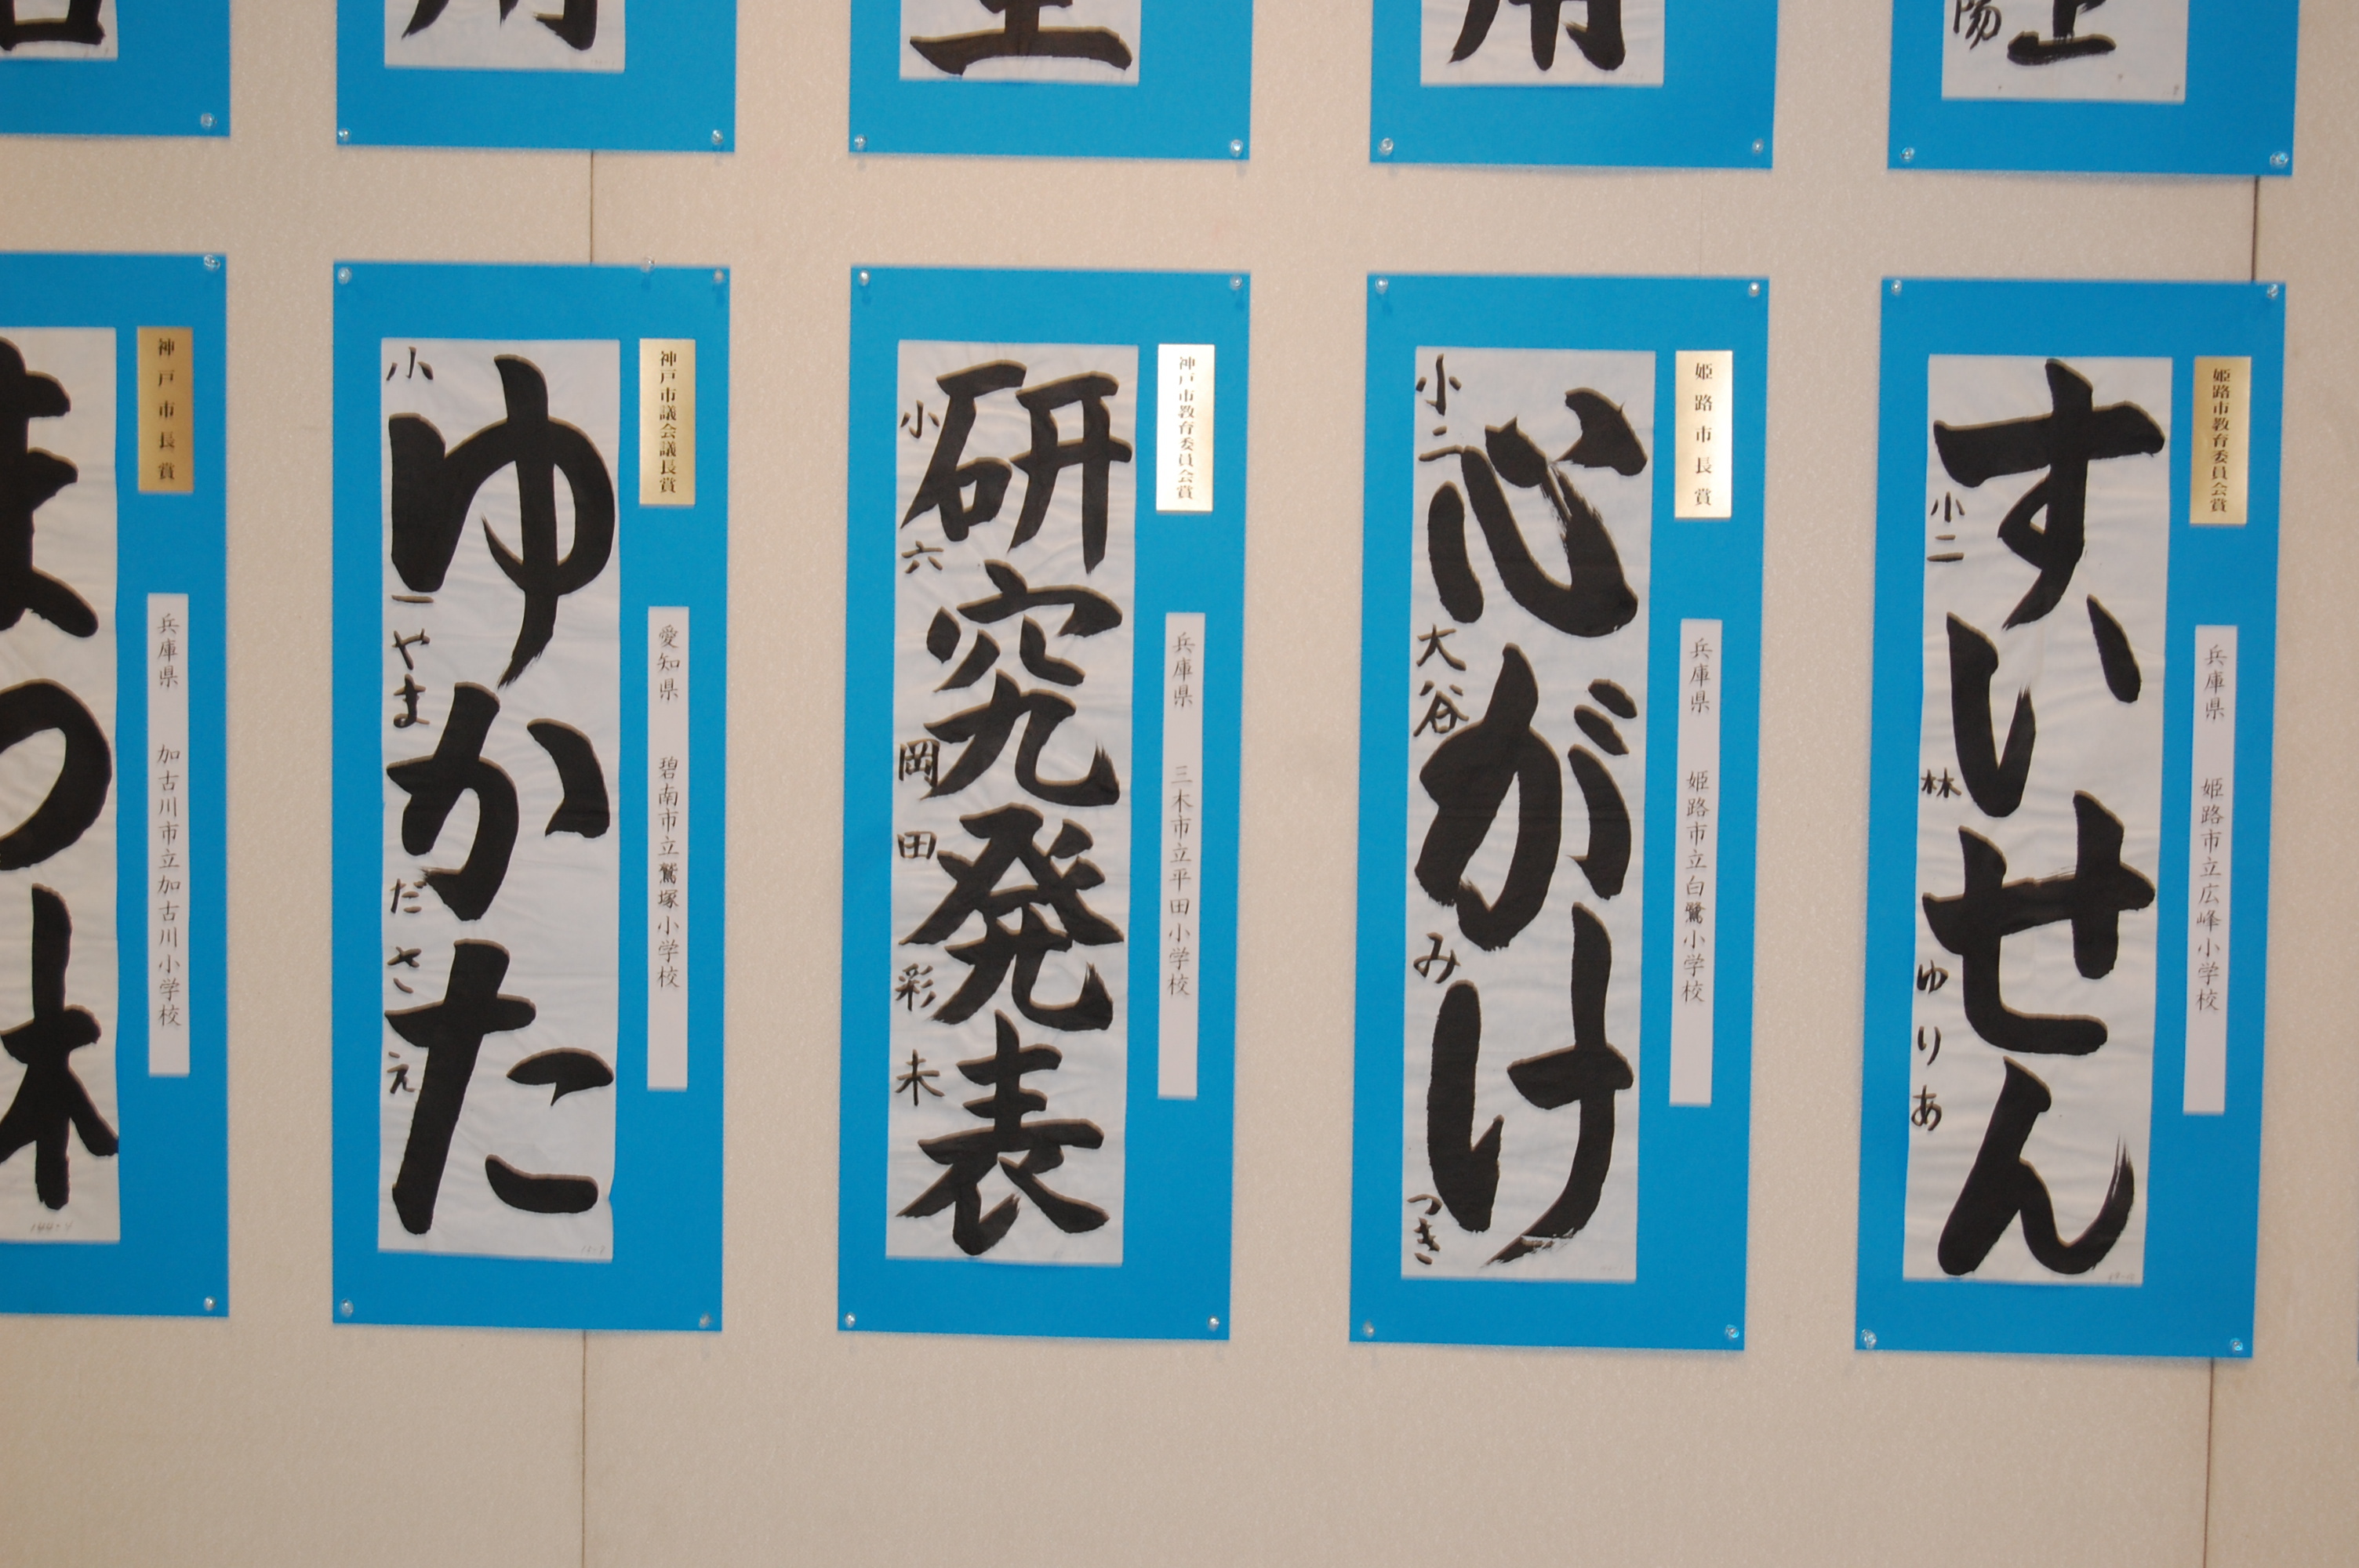 神戸市長賞
兵庫県 加古川市立加古川小学校
まつ林
神戸市議会議長賞
愛知県 碧南市立鷲塚小学校
ゆかた
小一 やまださえ
神戸市教育委員会賞
兵庫県 三木市立平田小学校
研究発表
小六 岡田彩未
姫路市長賞
兵庫県 姫路市立白鷺小学校
心がけ
小二 大谷みつき
姫路市教育委員会賞
兵庫県 姫路市立広峰小学校
すいせん
小二 林ゆりあ